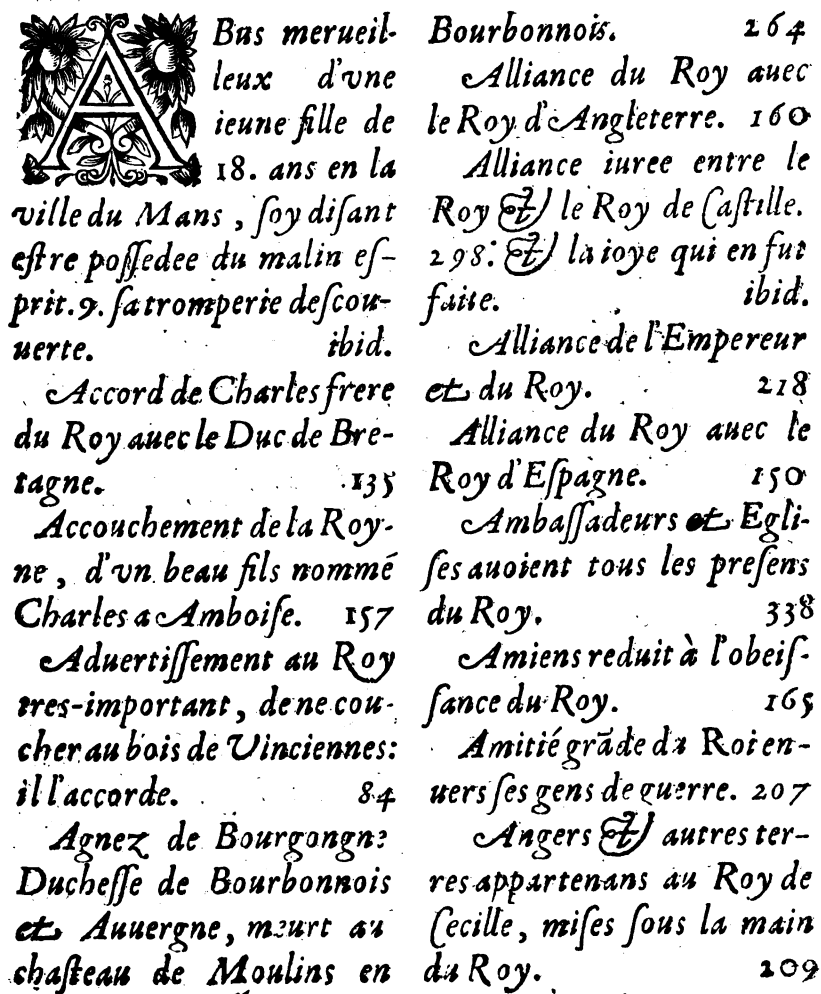 ABus merueil-
leux d'vne
ieune fille de
18. ans en la
ville du Mans, ſoy diſant
eſtre poſſedee du malin eſ-
prit. 9. ſa tromperie deſcou-
uerte. ibid.
Accord de Charles frere
du Roy auec le Duc de Bre-
tagne. 135
Accouchement de la Roy-
ne, d'vn beau fils nommé
Charles a Amboiſe. 157
Aduertiſſement au Roy
tres-important, de ne cou-
cher au bois de Vinciennes:
il l'accorde. 84
Agnez de Bourgongne
Ducheſſe de Bourbonnois
et Auuergne, meurt au
chaſteau de Moulins en
Bourbonnois. 264
Alliance du Roy auec
le Roy d'Angleterre. 160
Alliance iuree entre le
Roy & le Roy de Caſtille.
298: & la ioye qui en fut
faite. ibid.
Alliance de l'Empereur
et du Roy. 218
Alliance du Roy auec le
Roy d'Eſpagne. 150
Ambaſſadeurs et Egli-
ſes auoient tous les preſens
du Roy. 338
Amiens reduit à l'obeiſ-
ſance du Roy. 165
Amitié grãde du Roi en-
uers ſes gens de guerre. 207
Angers & autres ter-
res appartenans au Roy de
Cecille, miſes ſous la main
du Roy. 209